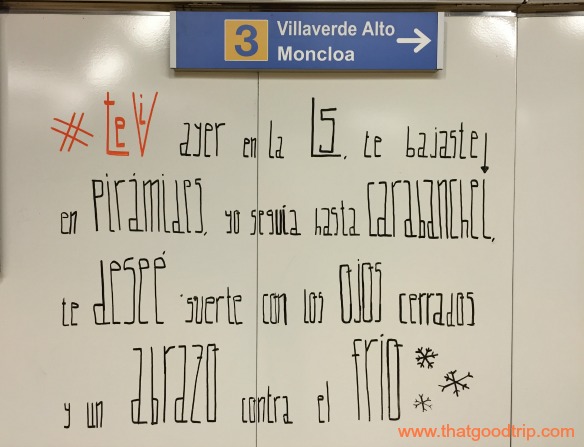 3 Villaverde Alto
Moncloa
# te vi ayer en la L5, te bajaste
en Pirámides, yo seguía hasta Carabanchel,
te deseé suerte con los ojos cerrados
y un abrazo contra el frío
www.thatgoodtrip.com